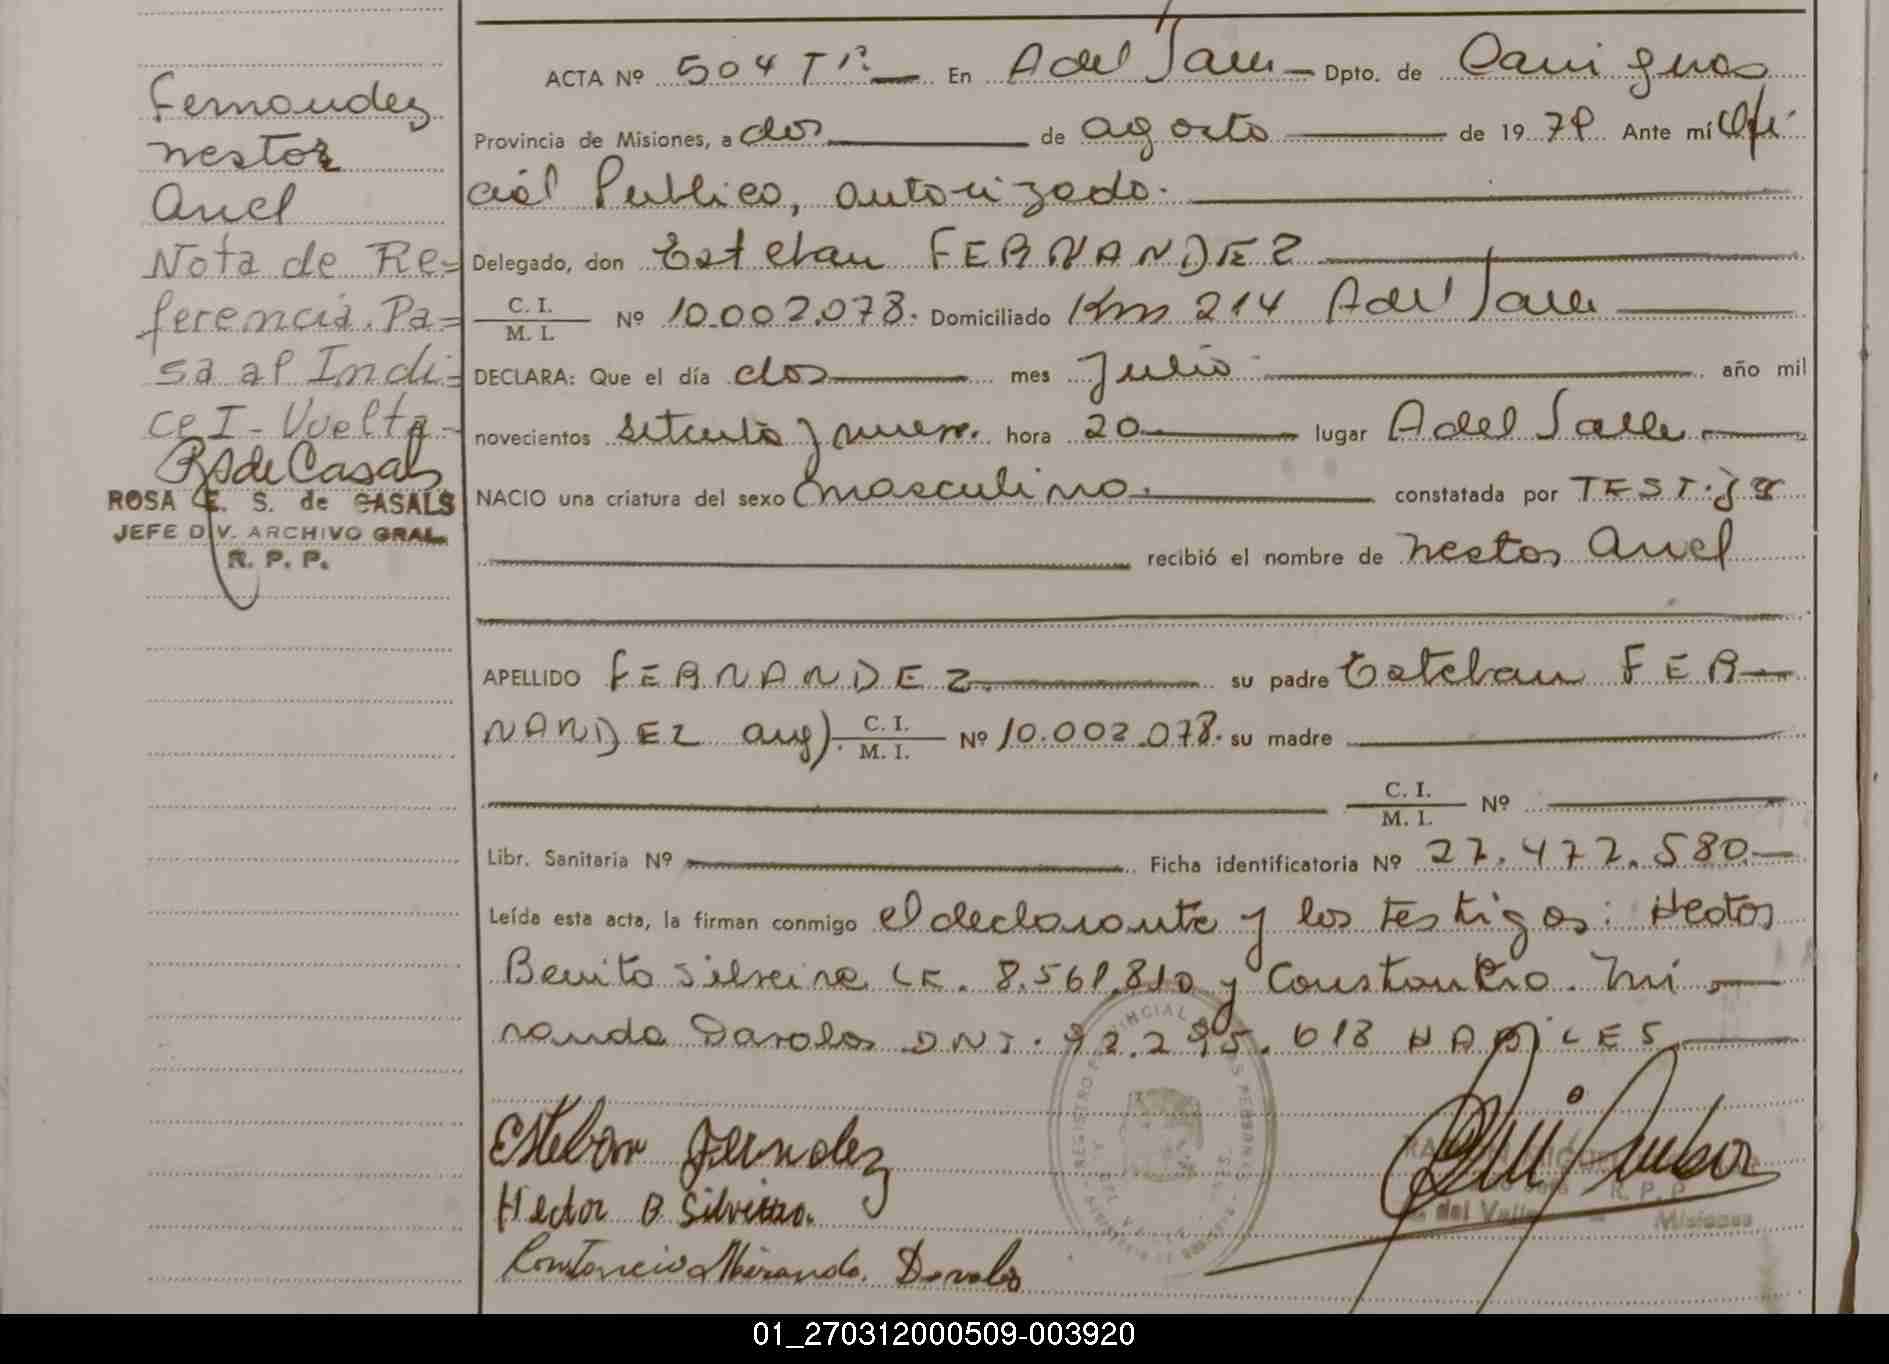 Fernandez
Nestor
Ariel
Nota de Re=
ferencia. Pa=
sa al Indi=
ce I - Vuelta -
RSde Casals
ROSA E. S. de CASALS
JEFE DIV. ARCHIVO GRAL.
R. P. P.
ACTA Nº 504 Tº. En A del Valle Dpto. de Cainguas
Provincia de Misiones, a dos de agosto de 1979 Ante mí Ofi
cial Publico, autorizado.
Delegado, don Esteban FERNANDEZ
C. I. / M. I. Nº 10.002.078. Domiciliado Km 214 A del Valle
DECLARA: Que el día dos mes Julio año mil
novecientos setenta y nueve. hora 20 lugar A del Valle
NACIO una criatura del sexo masculino. constatada por TEST.
recibió el nombre de Nestor Ariel
APELLIDO FERNANDEZ su padre Esteban FER-
NANDEZ arg). C. I. / M. I. Nº 10.002.078. su madre
C. I. / M. I. Nº
Libr. Sanitaria Nº Ficha identificatoria Nº 27.477.580
Leída esta acta, la firman conmigo el declarante y los testigos: Hector
Benito Silveira LE. 8.561.810 y Constancio. Mi
randa Davalos DNI. 92.295.618 HABILES
Esteban Fernandez
Hector B Silveira.
Constancio Miranda. Davalos
REGISTRO PROVINCIAL
R. P. P.
del Valle - Misiones
01_270312000509-003920